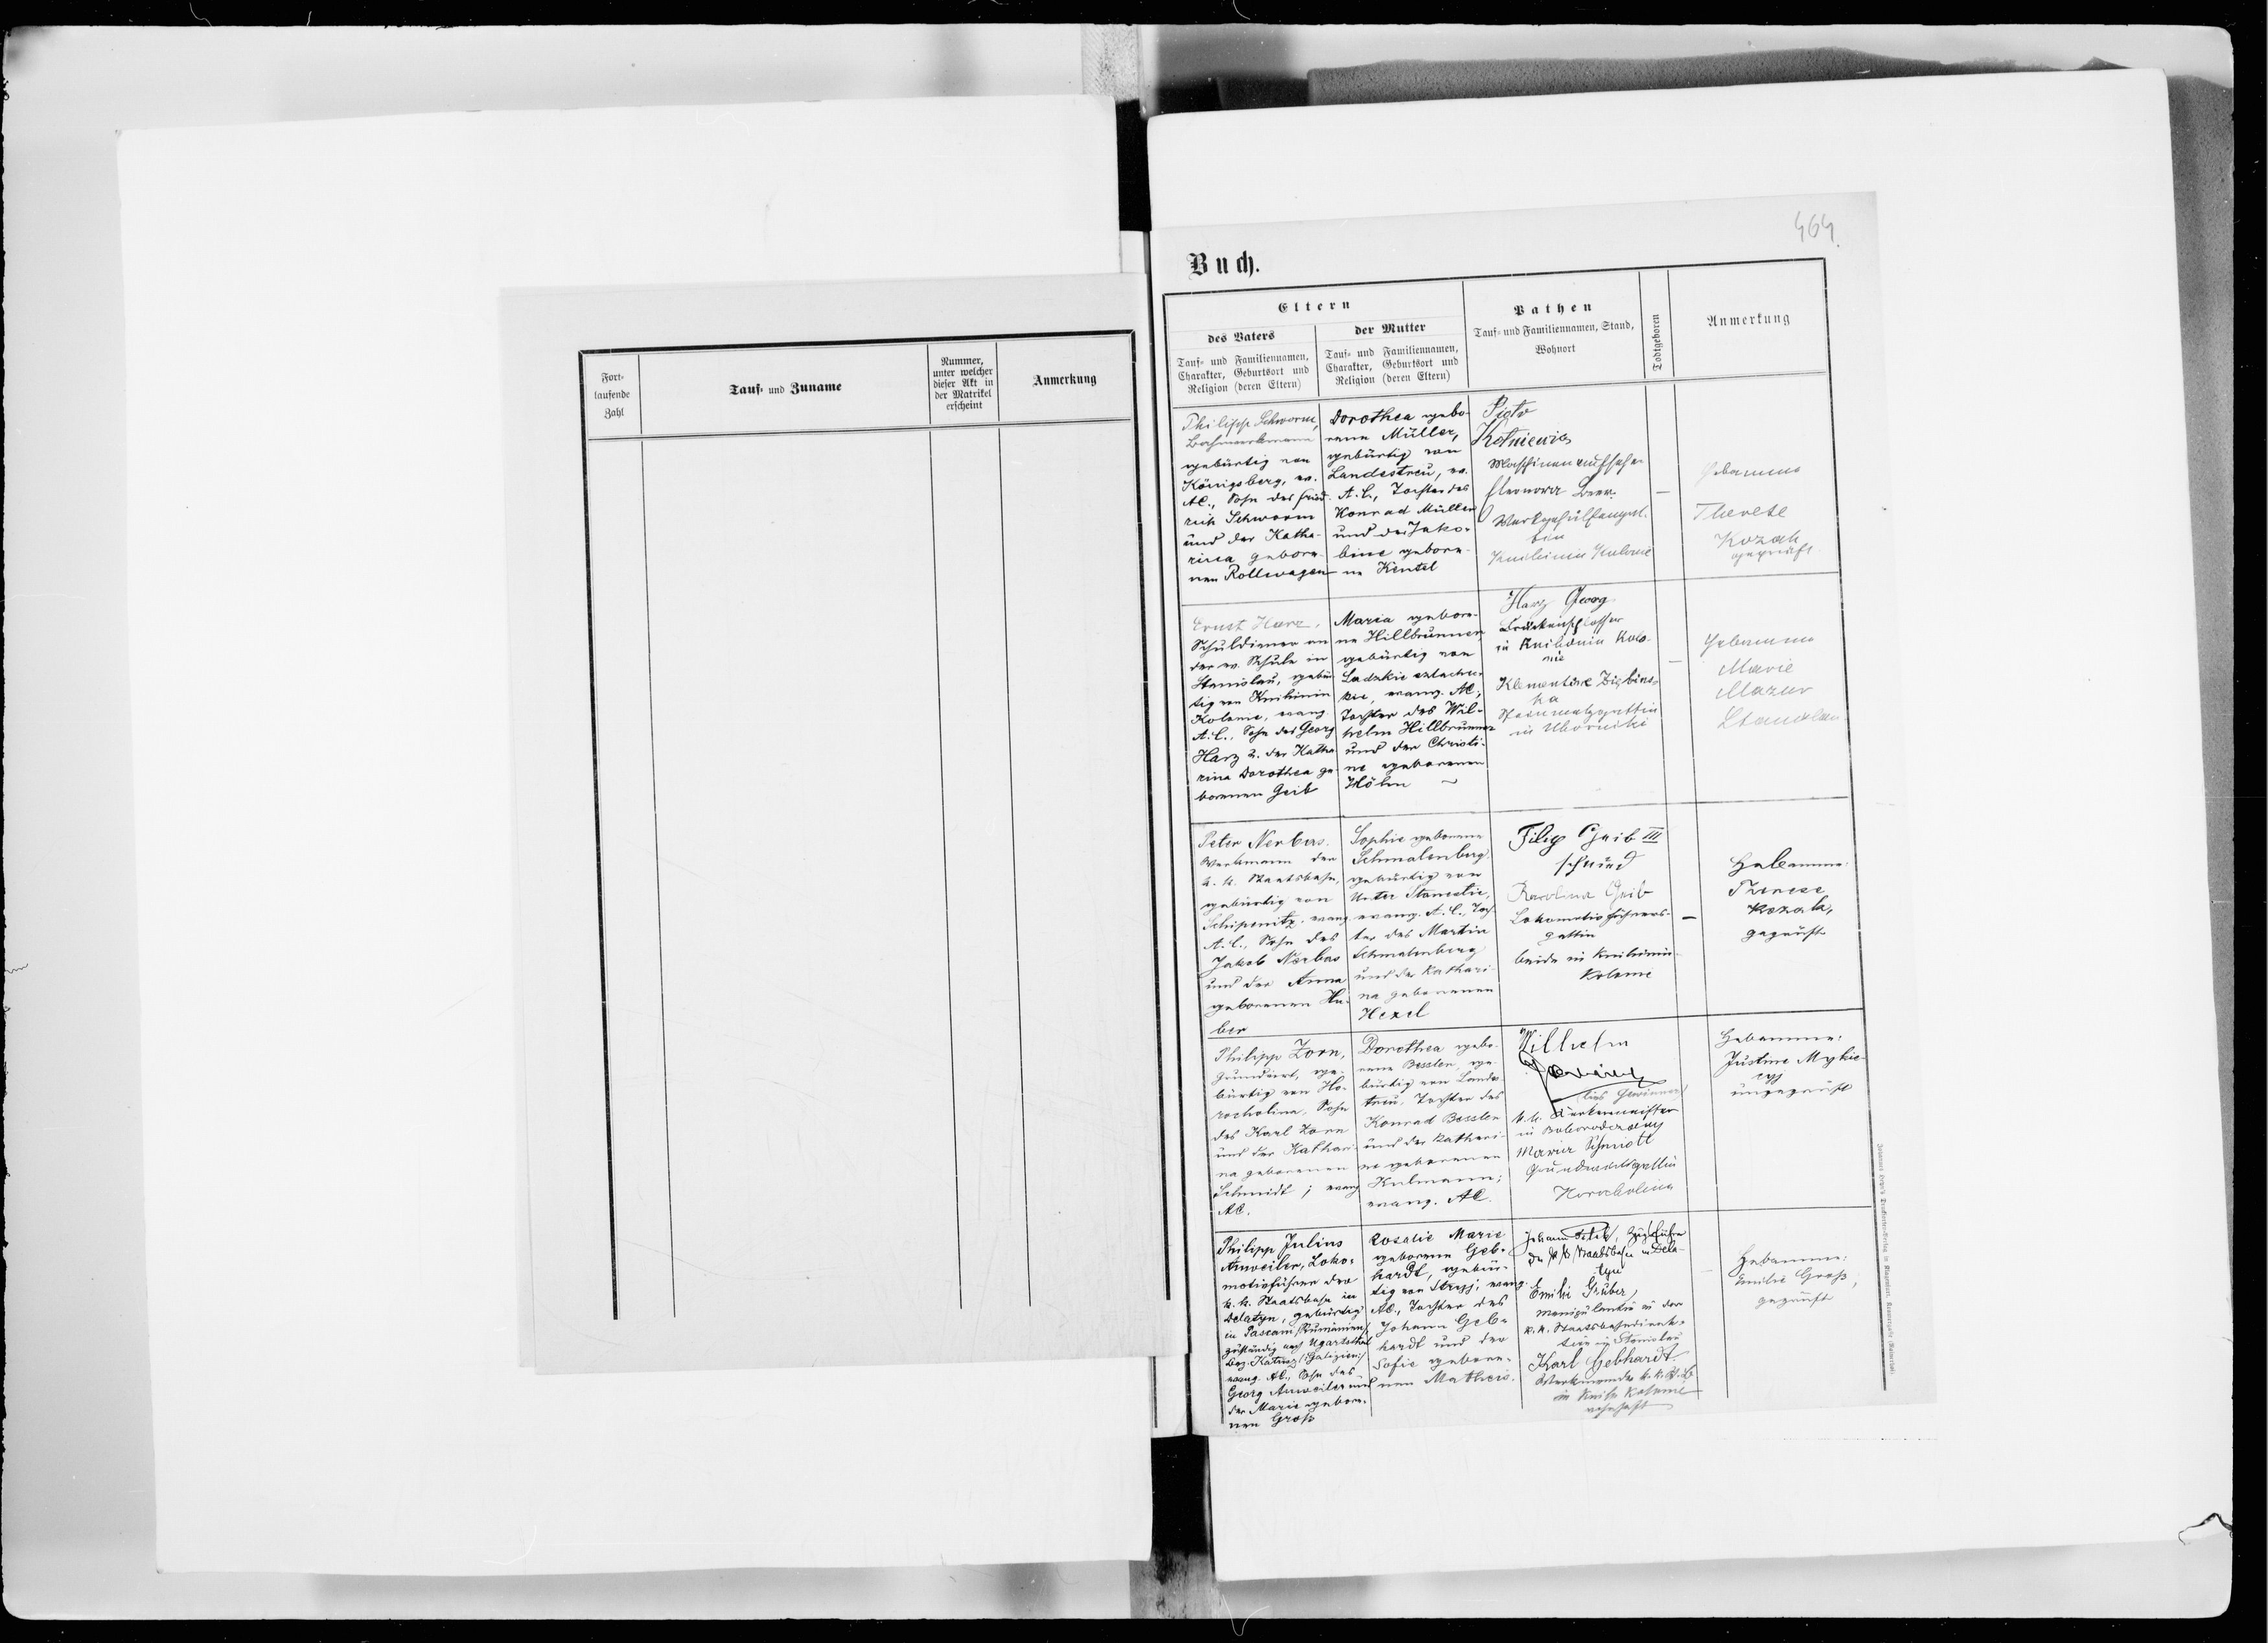 Fort-
laufende
Zahl
Tauf- und Zuname
Nummer,
unter welcher
dieser Akt in
der Matrikel
erscheint
Anmerkung
464.
Buch.
Eltern
des Vaters
Tauf- und Familiennamen,
Charakter, Geburtsort und
Religion (deren Eltern)
der Mutter
Tauf- und Familiennamen,
Charakter, Geburtsort und
Religion (deren Eltern)
Pathen
Tauf- und Familiennamen, Stand,
Wohnort
Todtgeboren
Anmerkung
Philipp Schworm,
gebürtig von
Königsberg, ev.
AC., Sohn des Fried-
rich Schworm
und der Katha-
rina gebore-
nen Rollwagen
Dorothea gebo-
rene Müller,
gebürtig von
Landestreu, ev.
A.C., Tochter des
Konrad Müller
und der Jako-
bine gebore-
ne Kentel
Piotr
Kotniewicz
Maschinenaufseher
Eleonora
Knihinin Kolonie
—
Hebamme
Therese
Kozak
geprüft.
Ernst Harz,
Schuldiener an
der ev. Schule in
Stanislau, gebür-
tig von Knihinin
Kolonie, evang.
A.C., Sohn des Georg
Harz u. der Katha-
rina Dorothea ge-
borenen Geib
Maria gebore-
ne Hillbrunner
gebürtig von
Ladzkie szlachec-
kie, evang. AC.,
Tochter des Wil-
helm Hillbrunner
und der Christi-
ne geborenen
Höhn
Harz Georg
in Knihinin Kolo-
nie
Klementine Zigbins-
ka
in Uhorniki
—
Hebamme
Marie
Mazur
Stanislau
Peter Nerbas.
Werkmann der
k. k. Staatsbahn,
gebürtig von
Schipenitz, evang.
A.C., Sohn des
Jakob Nerbas
und der Anna
geborenen Hu-
ber
Sophie geborene
Schmalenberg.
gebürtig von
Unter Stanestie,
evang. A.C., Toch-
ter des Martin
Schmalenberg
und der Kathari-
na geborenen
Hexel
Filip Geib III
Schmied
Karolina Geib
Lokomotivführers-
gattin
beide in Knihinin-
Kolonie
—
Hebamme:
Therese
Kozak,
geprüft
Philipp Zorn,
Grundwirt, ge-
bürtig von Ho-
rocholina, Sohn
des Karl Zorn
und der Kathari-
na geborenen
Schmidt; evang.
AC.
Dorothea gebo-
rene Bessler, ge-
bürtig von Landes-
treu, Tochter des
Konrad Bessler
und der Kathari-
ne geborenen
Kulmann;
evang. AC.
Wilhelm
in Bohorodczany
Maria Schmidt
Grundwirtsgattin
Horocholina
Hebamme:
Justine Mykie-
tyj
ungeprüft
Philipp Julius
Anweiler, Loko-
motivführer der
k. k. Staatsbahn in
Delatyn, gebürtig
in Pascani (Rumänien)
zuständig nach Ugartsthal
Bez. Kalusz (Galizien)
evang. AC., Sohn des
Georg Anweiler und
der Marie gebore-
nen Groß
Rosalie Marie
geborene Geb-
hardt, gebür-
tig von Stryj; evang.
AC., Tochter des
Johann Geb-
hardt und der
Sofie gebore-
nen Matheis.
Johann , Zugsführer
der k. k. Staatsbahn in Dela-
tyn
Emilie Gruber,
Manipulantin in der
k. k. Staatsbahndirek-
tion in Stanislau
Karl Gebhardt
in Knih. Kolonie
wohnhaft
—
Hebamme:
Emilie Groß,
geprüft